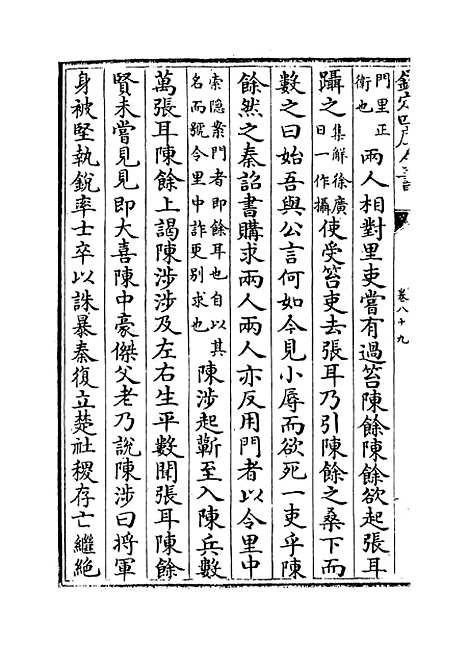 欽定四庫全書
卷八十九
門里正衛也兩人相對里吏嘗有過笞陳餘陳餘欲起張耳
躡之集解徐廣曰一作攝使受笞吏去張耳乃引陳餘之桑下而
數之曰始吾與公言何如今見小辱而欲死一吏乎陳
餘然之秦詔書購求兩人兩人亦反用門者以令里中
索隱案門者即餘耳也自以其名而號令里中詐更别求也陳涉起蘄至入陳兵數
萬張耳陳餘上謁陳涉涉及左右生平數聞張耳陳餘
賢未嘗見見即大喜陳中豪傑父老乃說陳涉曰將軍
身被堅執銳率士卒以誅暴秦復立楚社稷存亡繼絶